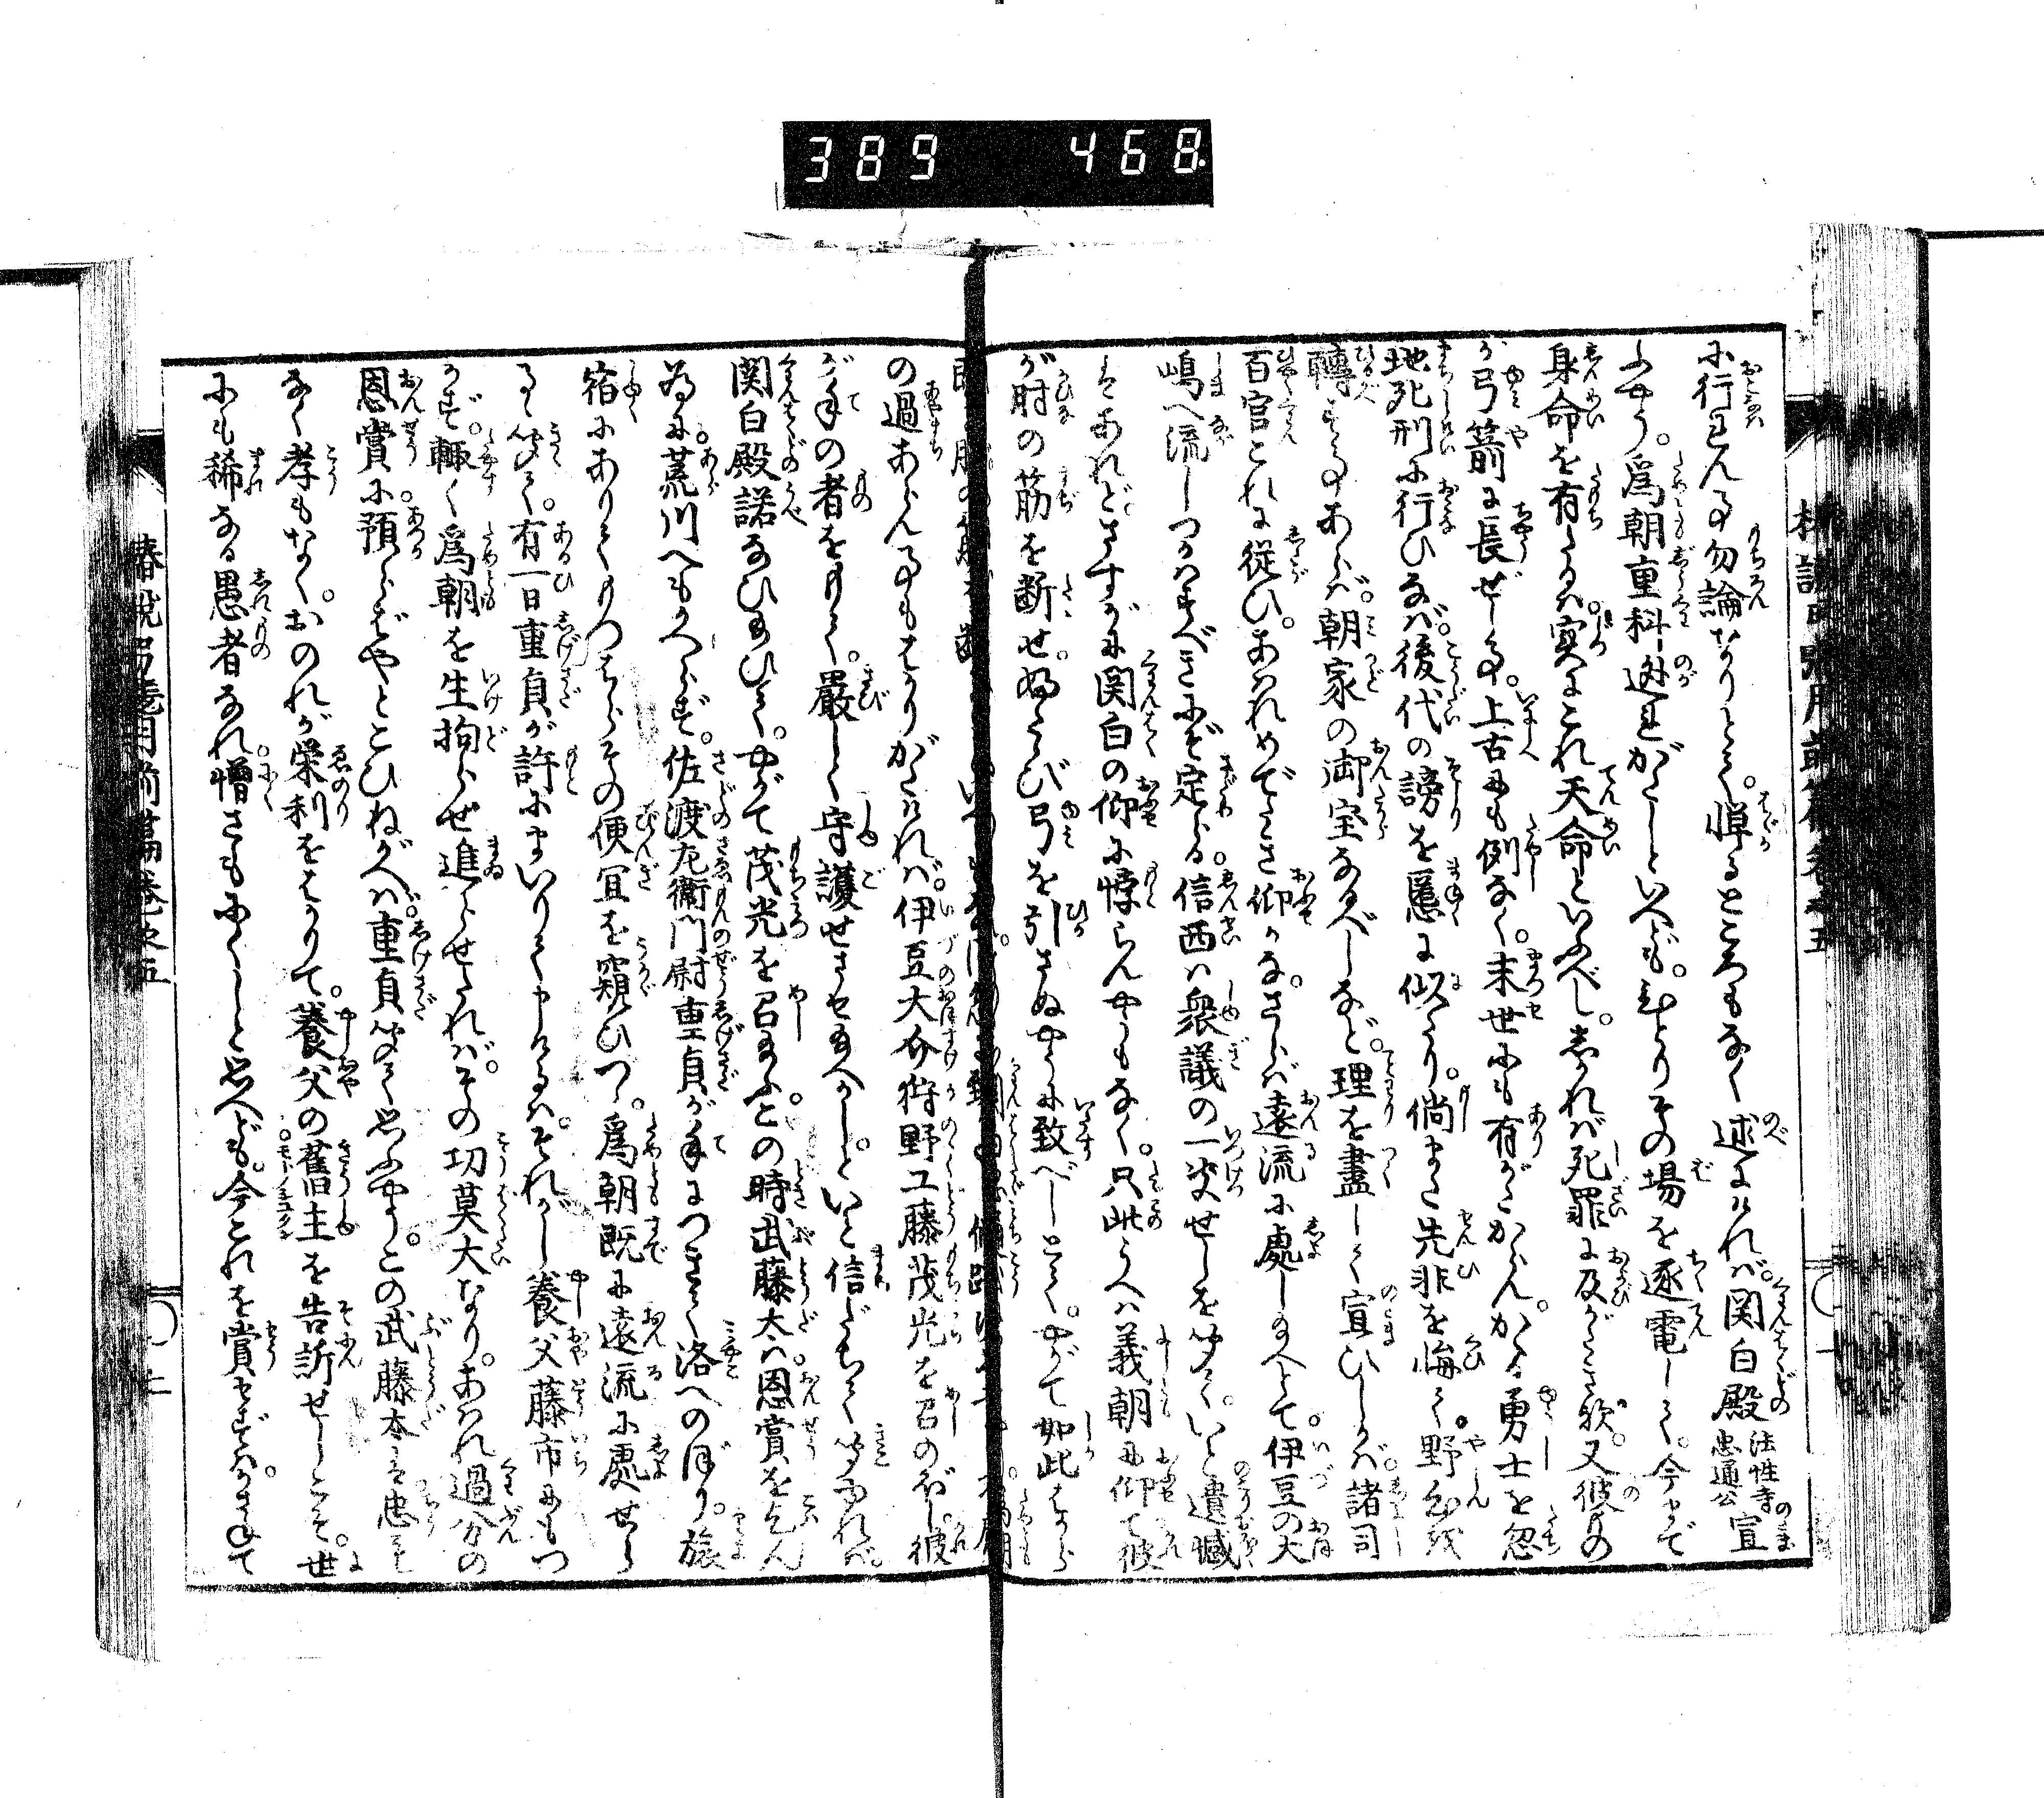 389 468
に行れん事勿論なりとて。憚るところもなく述にければ。関白殿法性寺忠通公宣
ふやう。爲朝重科遁れがたしといへども。ひとりその場を逐電して。今まで
身命を有たるは。実にこれ天命といふべし。しかれば死罪に及がたき歟。又彼もの
が弓箭に長ぜし事。上古にも例なく。末世にも有がたからん。かゝる勇士を忽
地死刑に行ひなば。後代の謗を慝に似たり。倘また先非を悔て。野心を
轉ずる事あらば。朝家の御宝なるべしなど。理を盡して宣ひしかば。諸司
百官これに従ひ。あはれめでたき仰かな。さらば遠流に處し給へとて。伊豆の大
嶋へ流しつかはすべきにぞ定る。信西は衆議の一决せしを聞て。いと遺憾
はあれど。さすがに関白の仰に悖らんやうもなく。只此うへは義朝に仰て彼
が肘の筋を断せ。ふたゝび弓を引さぬやうに致べしとて。やがて如此はから
の過あらん事もはかりがたければ。伊豆大介狩野工藤茂光を召のぼし。彼
が手の者をもて。厳しく守護せさせ給へかし。といと信だちて聞ゆれば。
関白殿諾なひ給ひて。やがて茂光を召給ふ。この時武藤太は恩賞を乞ん
為に。荒川へもかへらず。佐渡左衞門尉重貞が手につきて洛へのぼり。旅
宿にありてもつはらその便宜を窺ひつゝ。爲朝既に遠流に處せら
るゝと聞て。有一日重貞が許にまいりて申けるは。それがし養父藤市にもつ
かず。輙く爲朝を生拘らせ進らせたれば。その切莫大なり。あはれ過分の
恩賞に預らばやとこひねがへば。重貞聞て思ふやう。この武藤太は忠も
なく孝もなく。おのれが栄利をはかりて。養父の舊主を告訴せしこそ。世
にも稀なる愚者なれ。憎さもにくしと思へども。今これを賞せずは。かさねて
椿説弓張月前篇巻之五